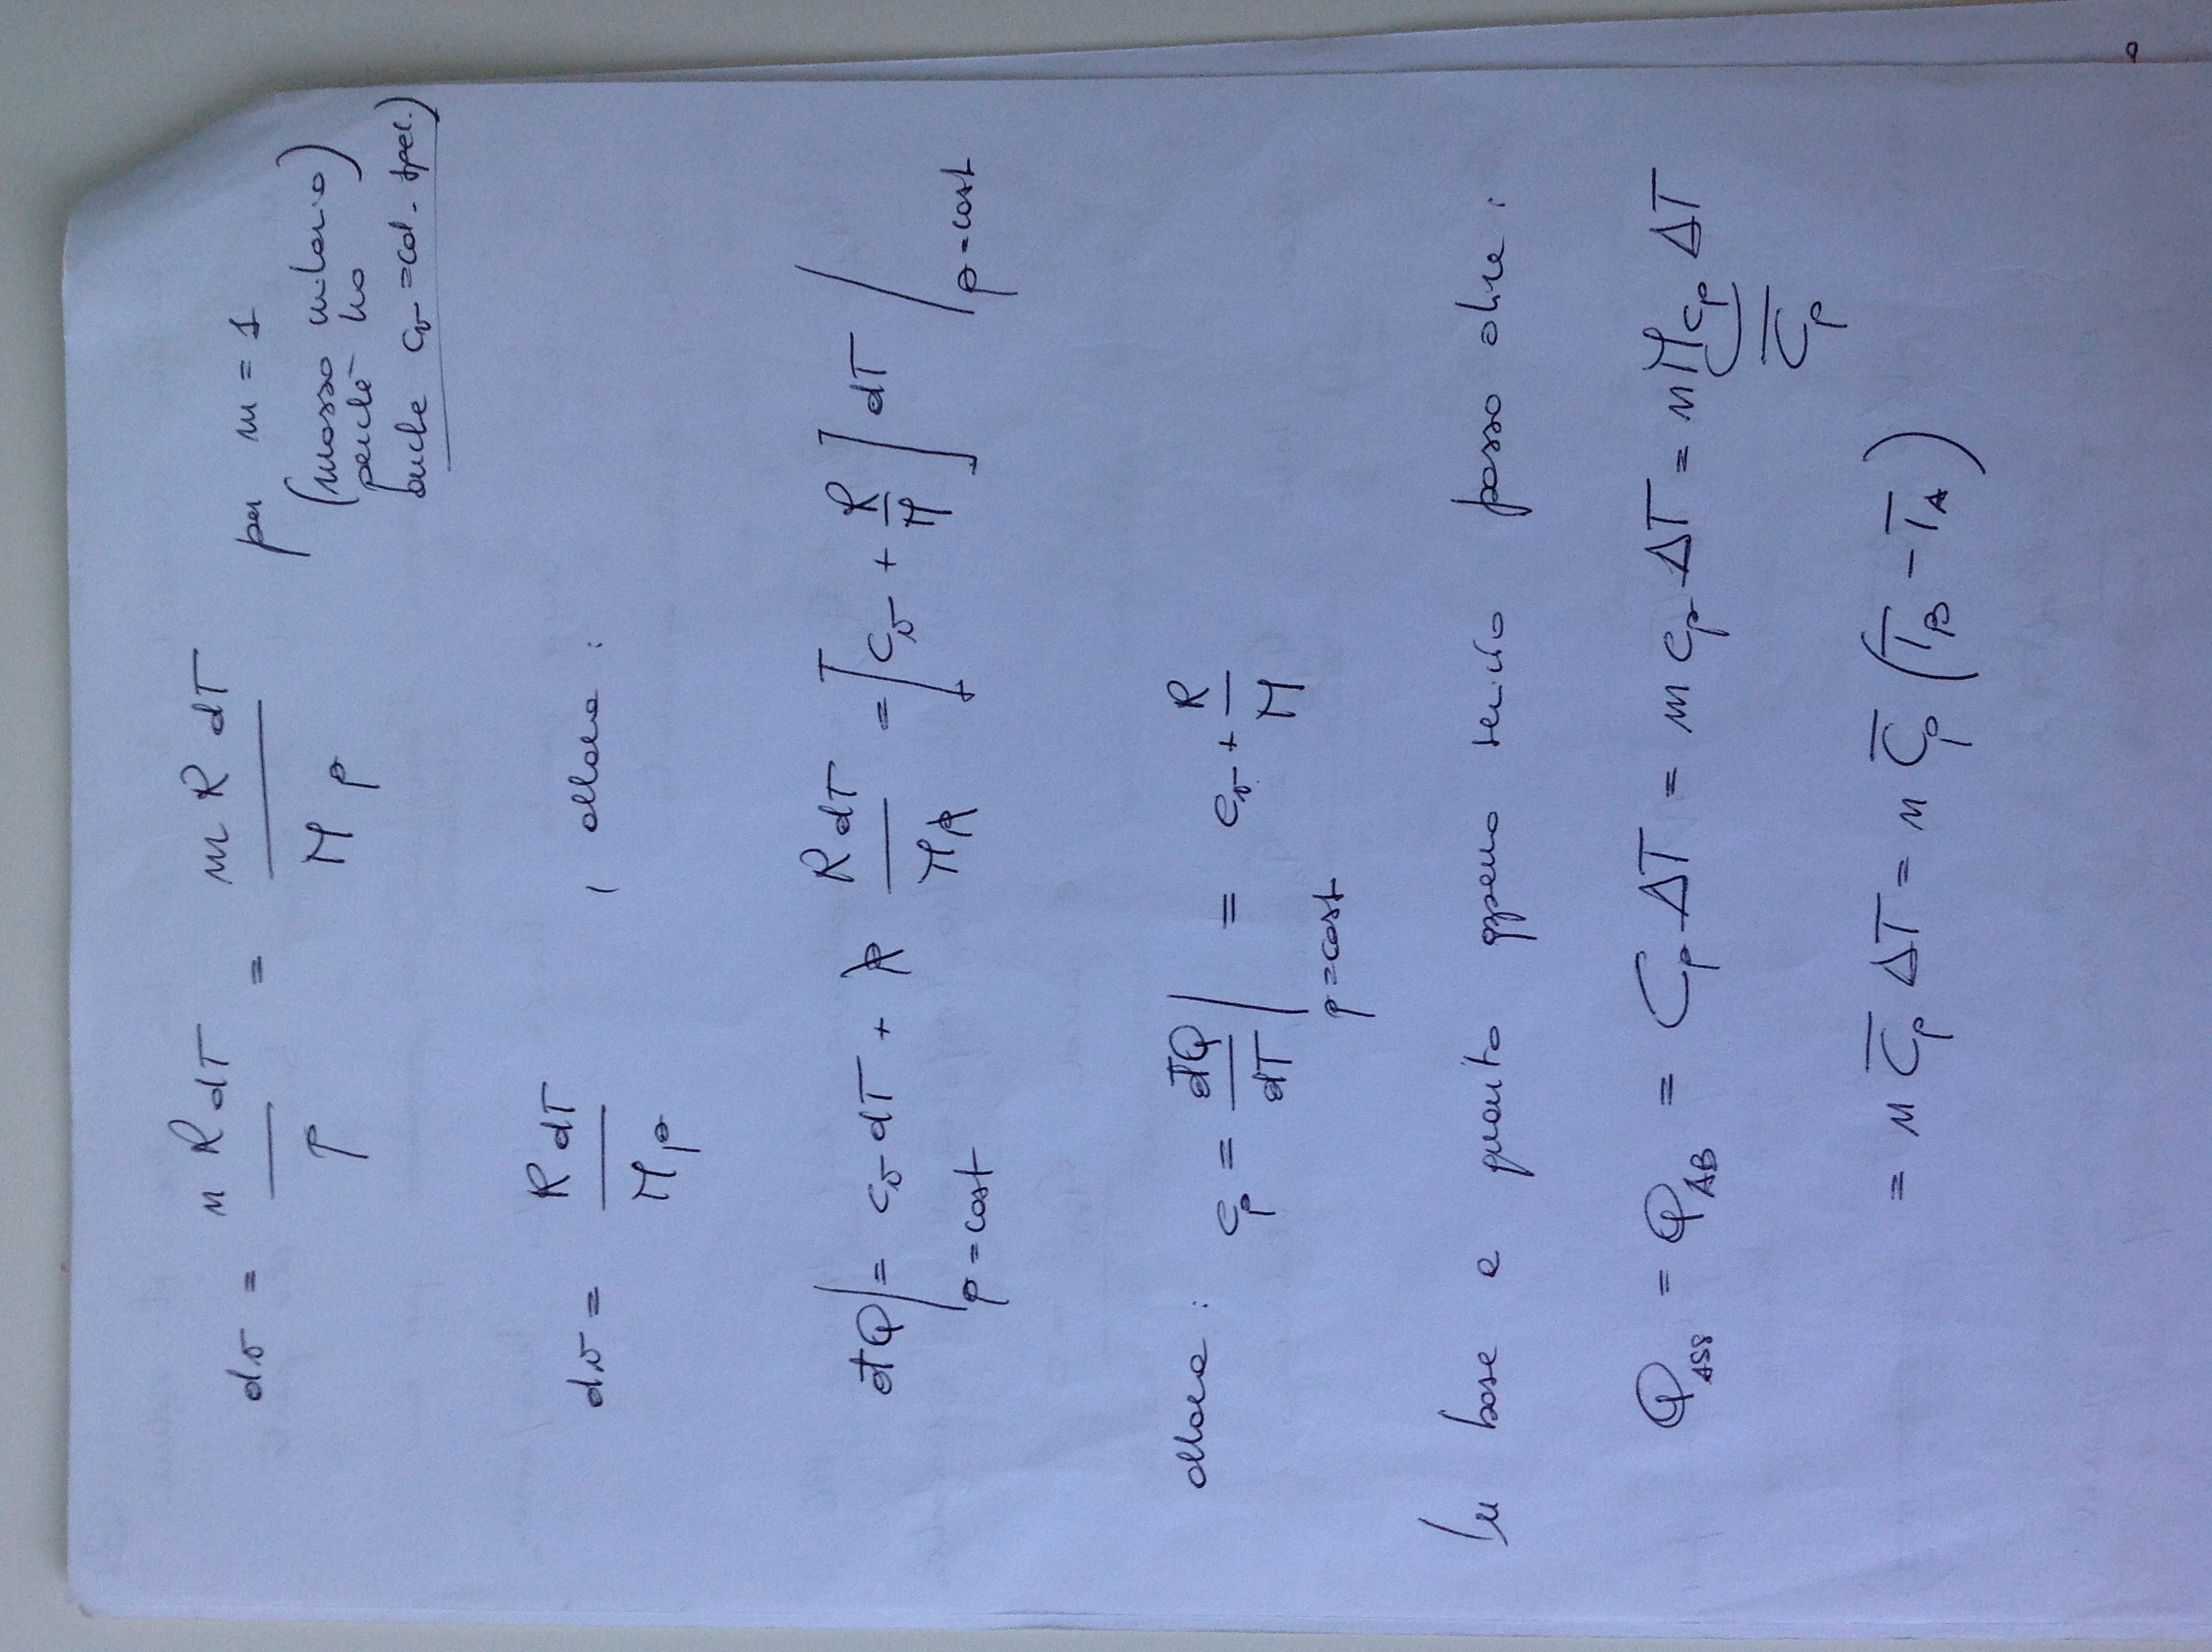 dv = n R dT / p = m R dT / M p per m = 1
(massa unitaria)
perchè ho
anche cv = cal. spec.)
dv = R dT / M p , allora :
đQ |p=cost = cv dT + p R dT / M p = [cv + R / M] dT |p=cost
allora : cp = đQ / dT |p=cost = cv + R / M
In base a quanto appena scritto posso dire :
QASS = QAB = Cp ΔT = m cp ΔT = n M cp ΔT
C̅p
= n C̅p ΔT = n C̅p (TB − TA)